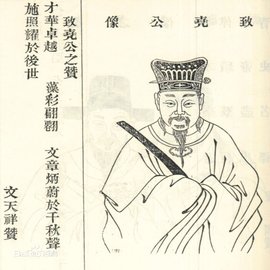 致堯公像
致堯公之贊
才華卓越 藻彩翩翩 文章炳蔚於千秋聲
施照耀於後世
文天祥贊